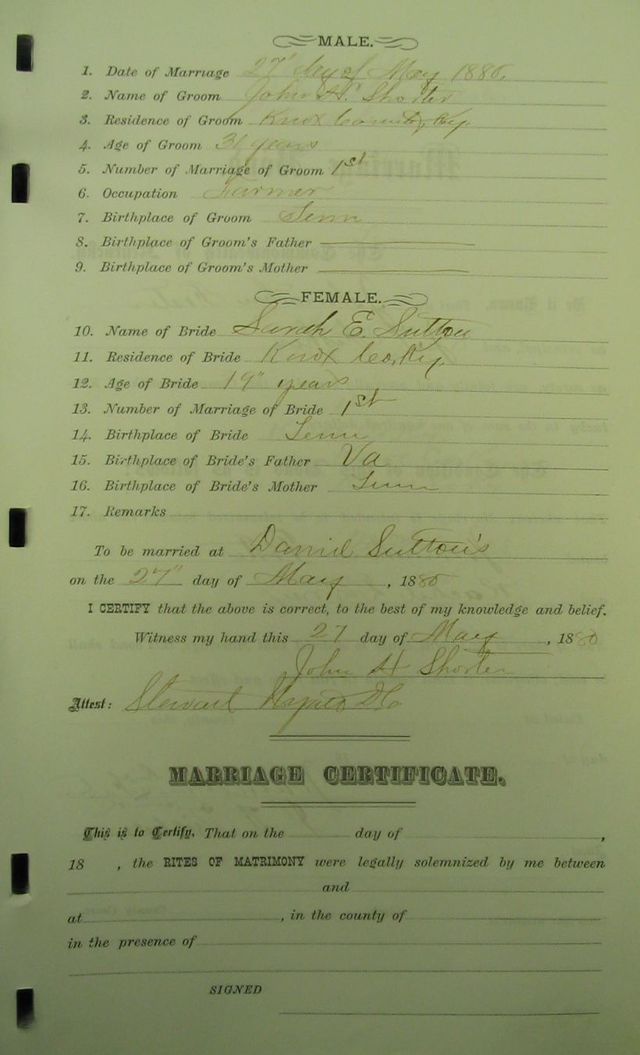 MALE.
1. Date of Marriage 27" day of May 1880.
2. Name of Groom John H. Shorter
3. Residence of Groom Knox County Ky
4. Age of Groom years
5. Number of Marriage of Groom 1st
6. Occupation Farmer
7. Birthplace of Groom Tenn
8. Birthplace of Groom's Father
9. Birthplace of Groom's Mother
FEMALE.
10. Name of Bride Sarah E. Sutton
11. Residence of Bride Knox Co, Ky.
12. Age of Bride 19" years
13. Number of Marriage of Bride 1st
14. Birthplace of Bride Tenn
15. Birthplace of Bride's Father Va
16. Birthplace of Bride's Mother Tenn
17. Remarks
To be married at Daniel Sutton's
on the 27" day of May, 1880
I CERTIFY that the above is correct, to the best of my knowledge and belief.
Witness my hand this 27 day of May, 1880
John H Shorter
Attest: Stewart
MARRIAGE CERTIFICATE.
This is to Certify, That on the day of ,
18 , the RITES OF MATRIMONY were legally solemnized by me between
and
at , in the county of
in the presence of
SIGNED